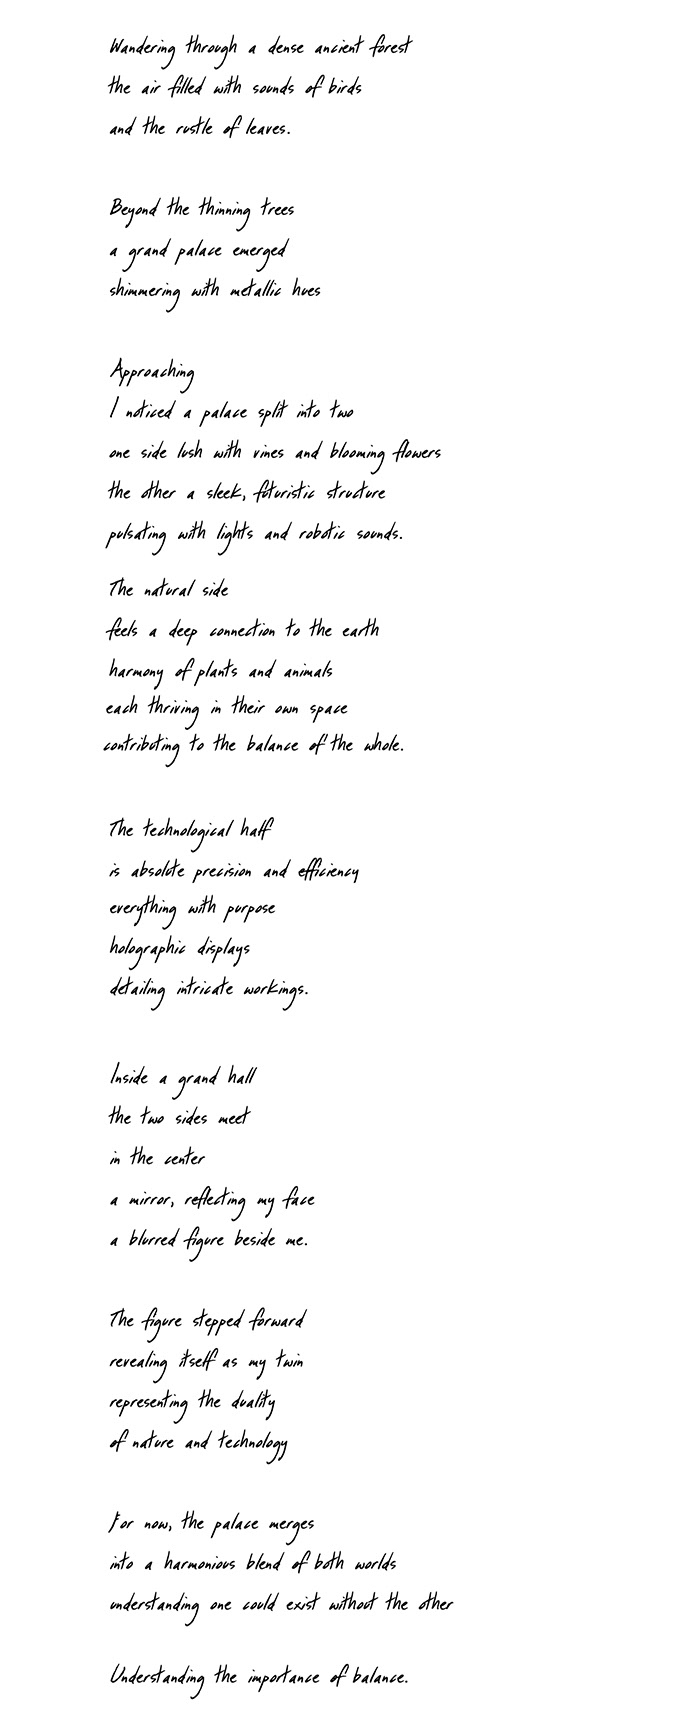 Wandering through a dense ancient forest
the air filled with sounds of birds
and the rustle of leaves.
Beyond the thinning trees
a grand palace emerged
shimmering with metallic hues
Approaching
I noticed a palace split into two
one side lush with vines and blooming flowers
the other a sleek, futuristic structure
pulsating with lights and robotic sounds.
The natural side
feels a deep connection to the earth
harmony of plants and animals
each thriving in their own space
contributing to the balance of the whole.
The technological half
is absolute precision and efficiency
everything with purpose
holographic displays
detailing intricate workings.
Inside a grand hall
the two sides meet
in the center
a mirror, reflecting my face
a blurred figure beside me.
The figure stepped forward
revealing itself as my twin
representing the duality
of nature and technology
For now, the palace merges
into a harmonious blend of both worlds
understanding one could exist without the other
Understanding the importance of balance.